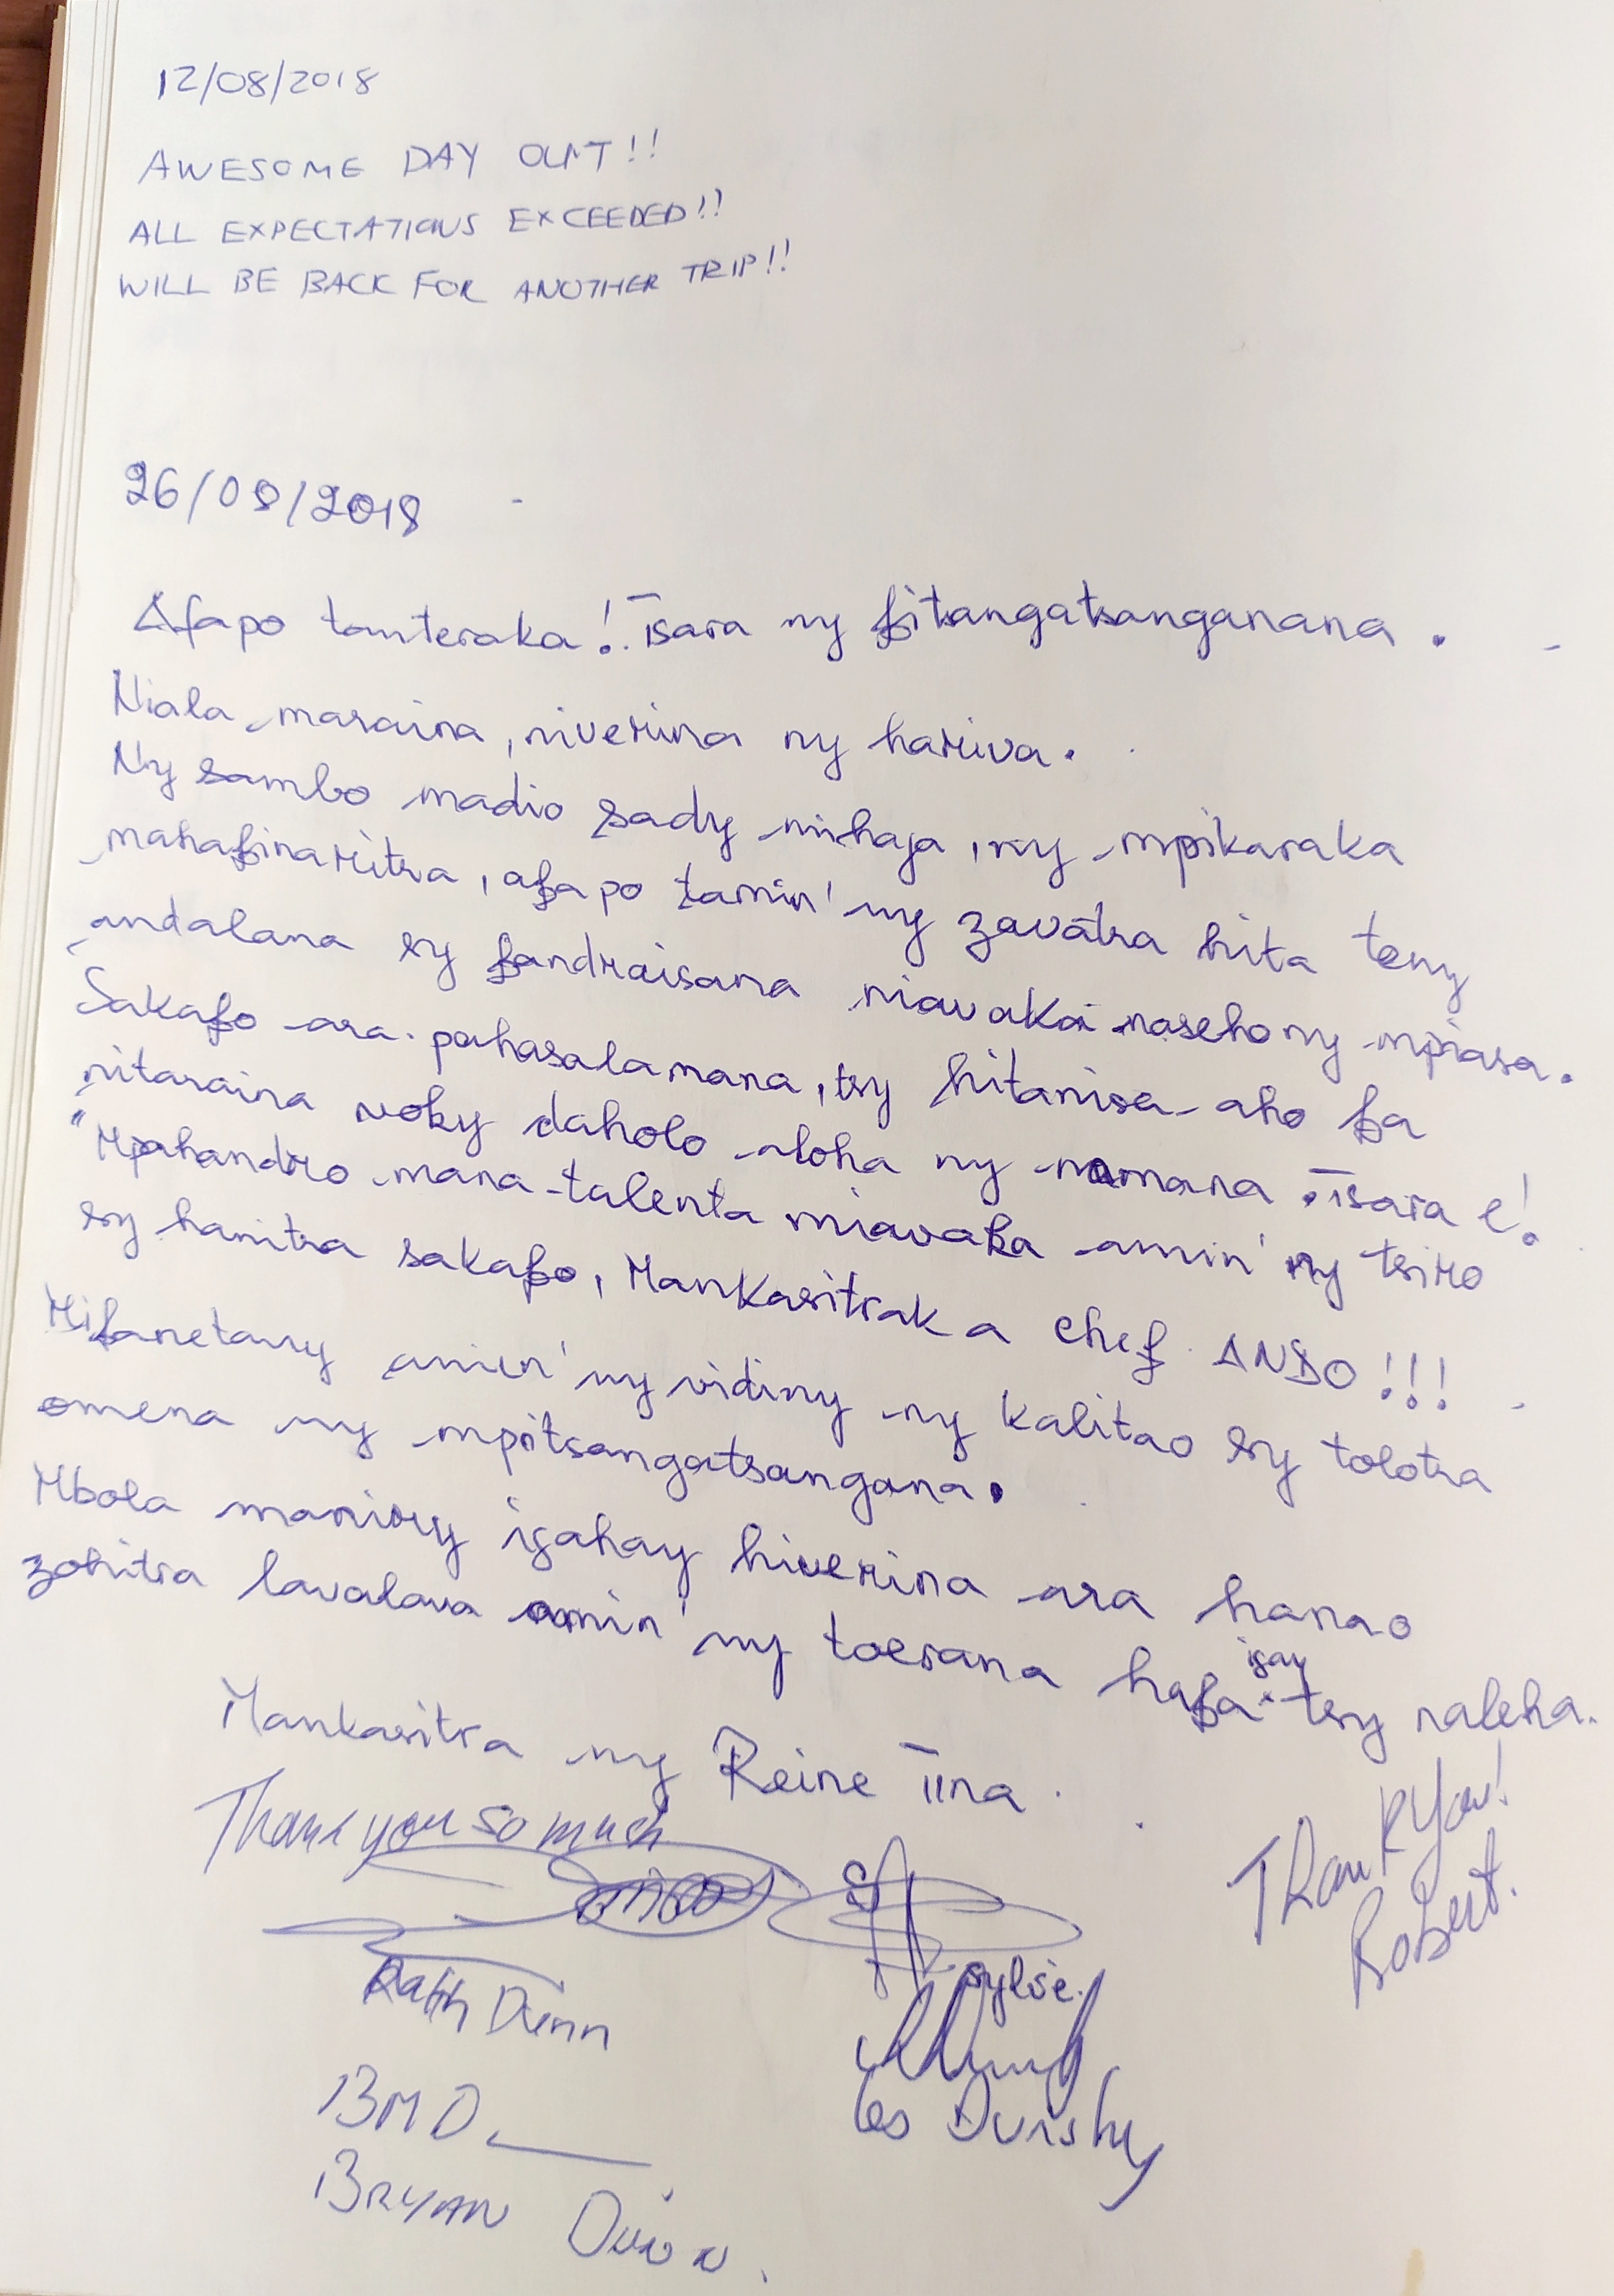 12/08/2018
AWESOME DAY OUT!!
ALL EXPECTATIONS EXCEEDED!!
WILL BE BACK FOR ANOTHER TRIP!!
26/08/2018
Afapo tanteraka! Tsara ny fitsangatsanganana.
Niala maraina, niverina ny hariva.
Ny sambo madio sady mihaja, ny mpikaraka
mahafinaritra, afapo tamin' ny zavatra hita teny
andalana sy fandraisana niavaka nasehony mpiasa.
Sakafo ara-pahasalamana, tsy hitanisa aho fa
nitaraina voky daholo aloha ny namana. Tsara e!
"Mpahandro mana-talenta miavaka amin' ny tsiro
sy hanitra sakafo, Mankasitraka chef ANDO!!!
Mifanetany amin' ny vidiny ny kalitao sy tolotra
omena ny mpitsangatsangana.
Mbola maniry izahay hiverina ara hanao
zohitra lavalava amin' ny toerana hafa izay tsy naleha.
Mankasitra ny Reine Tina.
Thank you so much
Thank You!
Robert.
Sylvie.
Ralph Dunn
BMD
Les
BRYAN Dunn.